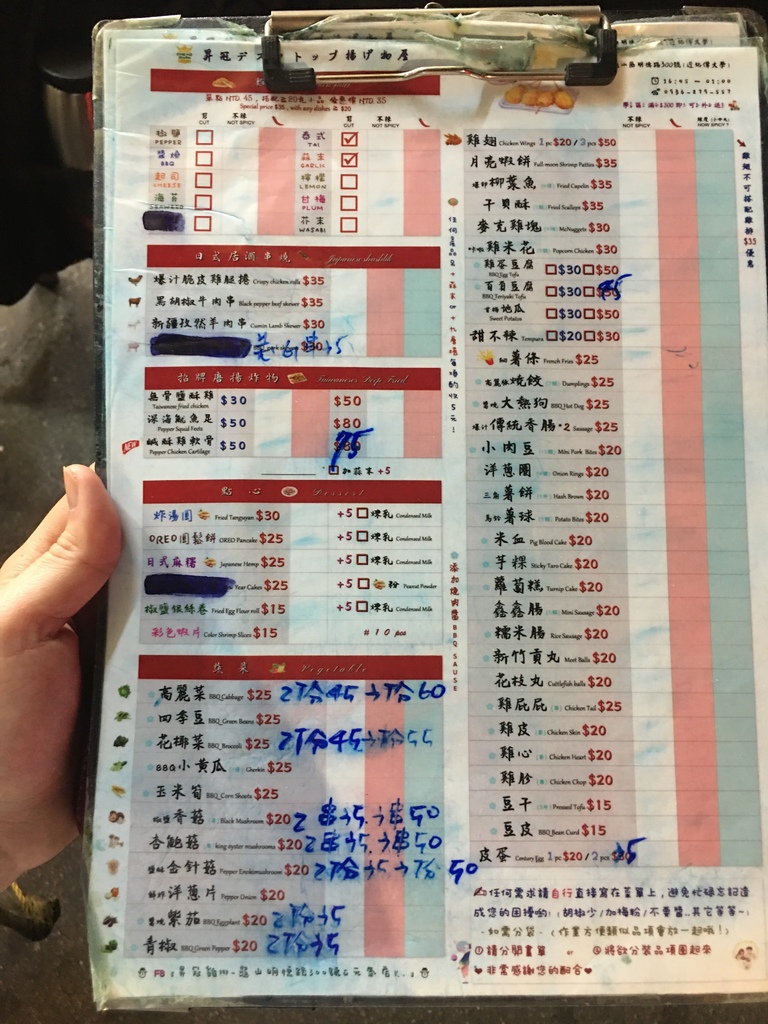 昇冠デスクトップ揚げ物屋
單點NTD.45, 搭配
優惠價NTD.35
Special price $35, with any dishes ≧ $20
剪 CUT
不辣 NOT SPICY
剪 CUT
不辣 NOT SPICY
椒鹽 PEPPER
泰式 TAI
醬燒 BBQ
蒜末 GARLIC
起司 CHEESE
檸檬 LEMON
海苔 SEAWEED
甘梅 PLUM
芥末 WASABI
日式居酒串燒
爆汁脆皮雞腿捲 Crispy chicken rolls $35
黑胡椒牛肉串 Black pepper beef skewer $35
新疆孜然羊肉串 Cumin Lamb Skewer $30
招牌唐揚炸物 Taiwanese Deep Fried
無骨鹽酥雞 Taiwanese fried chicken $30 $50
深海魷魚足 Pepper Squid Feets $50 $80
NEW 鹹酥雞軟骨 Pepper Chicken Cartilage $50 75
加蒜末 +5
點心 Dessert
炸湯圓 Fried Tangyuan $30 +5 煉乳 Condensed Milk
OREO圓鬆餅 OREO Pancake $25 +5 煉乳 Condensed Milk
日式麻糬 Japanese Hemp $25 +5 煉乳 Condensed Milk
Year Cakes $25 +5 粉 Peanut Powder
椒鹽銀絲卷 Fried Egg Flour roll $15 +5 煉乳 Condensed Milk
彩色蝦片 Color Shrimp Slices $15 #10 pcs
蔬菜 Vegetable
高麗菜 BBQ_Cabbage $25
四季豆 BBQ_Green Beans $25
花椰菜 BBQ_Broccoli $25
BBQ小黃瓜 Gherkin $25
玉米筍 BBQ_Corn Shouts $25
椒鹽香菇 Black Mushroom $20
杏鮑菇 king oyster mushrooms $20
金針菇 Pepper Enokimushroom $20
洋蔥片 Pepper Onion $20
紫茄 BBQ_Eggplant $20
青椒 BBQ_Green Pepper $20
16:45 ~ 01:00
不辣 NOT SPICY
HOW SPICY?
雞翅 Chicken Wings 1 pc $20 / 3 pcs $50
月亮蝦餅 Full-moon Shrimp Patties $35
柳葉魚 Fried Capelin $35
干貝酥 Fried Scallops $35
麥克雞塊 McNuggets $30
雞米花 Popcorn Chicken $30
雞蛋豆腐 BBQ Egg Tofu $30 $50
百頁豆腐 BBQ Teriyaki Tofu $30 45
地瓜 Sweet Potatos $30 $50
甜不辣 Tempura $20 $30
薯條 French Fries $25
高麗菜燒餃 Dumplings $25
大熱狗 BBQ Hot Dog $25
傳統香腸*2 Sausage $25
小肉豆 Mini Pork Bites $20
洋蔥圈 Onion Rings $20
三角薯餅 Hash Brown $20
薯球 Potato Bites $20
米血 Pig Blood Cake $20
芋粿 Sticky Taro Cake $20
蘿蔔糕 Turnip Cake $20
鑫鑫腸 Mini Sausage $20
糯米腸 Rice Sausage $20
新竹貢丸 Meet Balls $20
花枝丸 Cuttlefish balls $20
雞屁屁 Chicken Tail $25
雞皮 Chicken Skin $20
雞心 Chicken Heart $20
雞胗 Chicken Chop $20
豆干 Pressed Tofu $15
豆皮 BBQ Bean Curd $15
皮蛋 Century Egg 1 pc $20 / 2 pcs
雞翅不可搭配雞排$35優惠
添加燒肉醬 BBQ SAUSE
任何需求請自行直接寫在菜單上，避免忙碌忘記造
成您的困擾喲! (胡椒少/加梅粉/不要醬..其它等等~)
-如需分袋- (作業方便類似品項會放一起哦!)
①請分開畫單 or ②將欲分裝品項圈起來
非常感謝您的配合